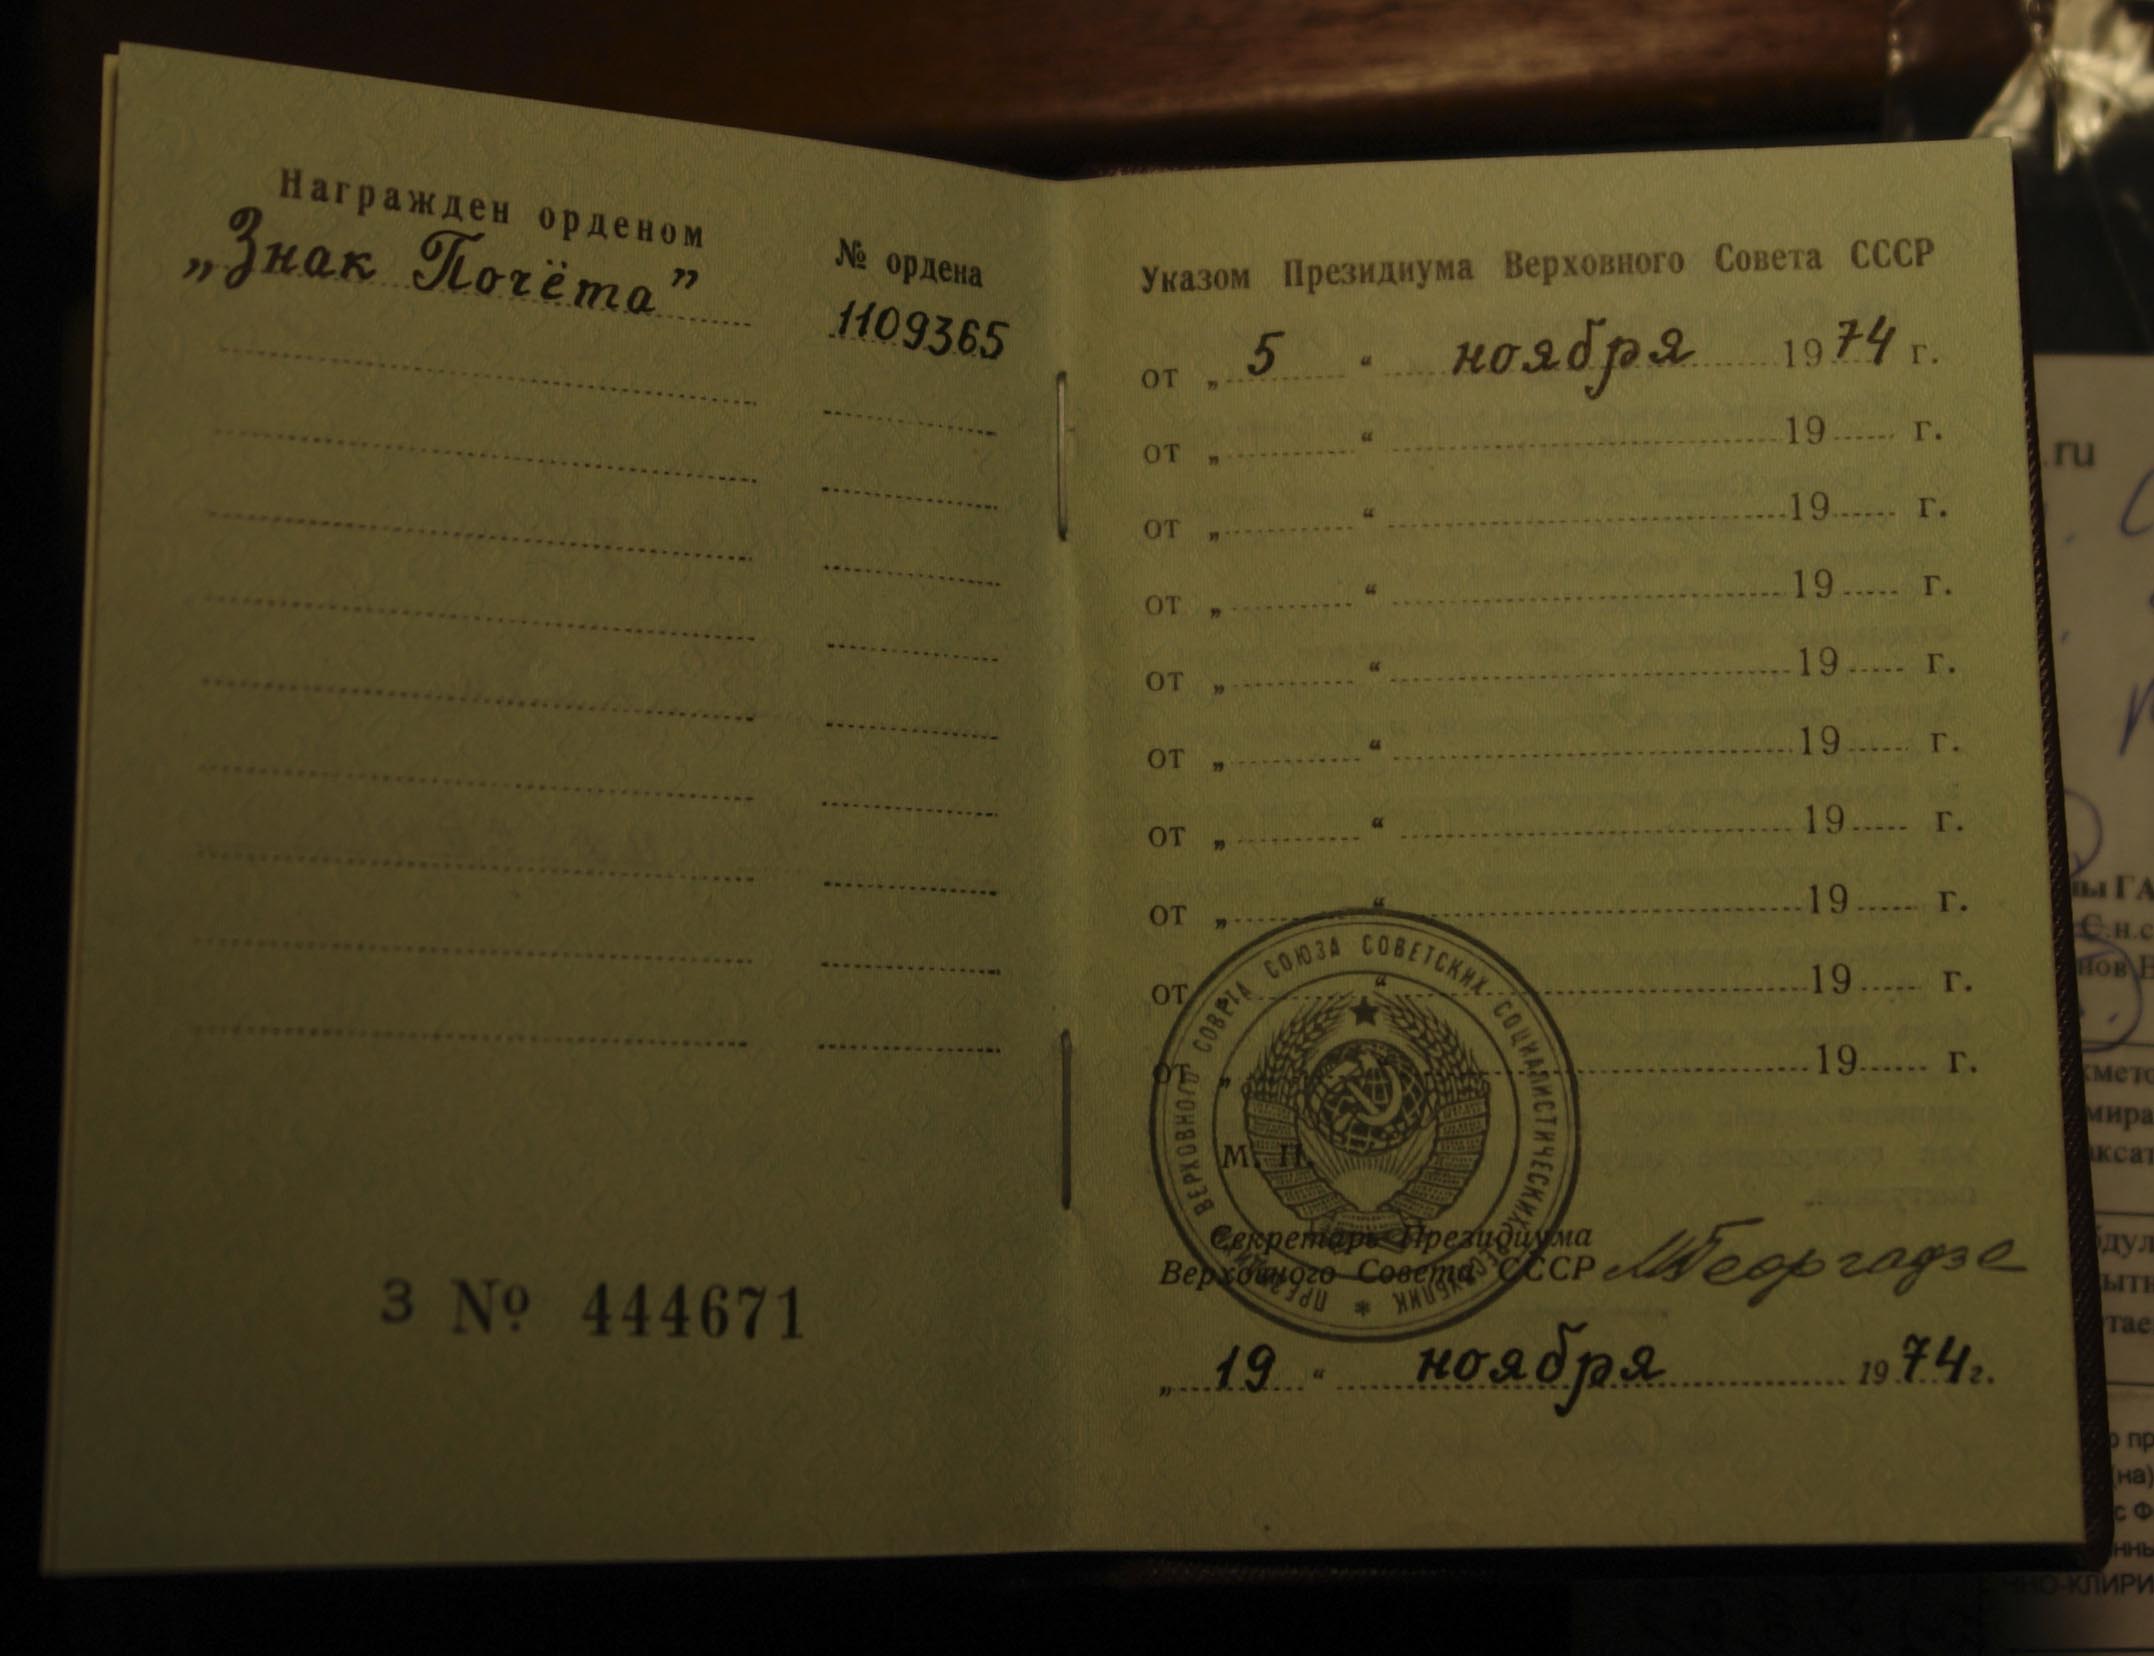 Награжден орденом
„Знак Почёта”
№ ордена
1109365
З № 444671
Указом Президиума Верховного Совета СССР
от „ 5 “ ноября 1974 г.
от „ “ 19 г.
от „ “ 19 г.
от „ “ 19 г.
от „ “ 19 г.
от „ “ 19 г.
от „ “ 19 г.
от „ “ 19 г.
от „ “ 19 г.
от „ “ 19 г.
ПРЕЗИДИУМ ВЕРХОВНОГО СОВЕТА СОЮЗА СОВЕТСКИХ СОЦИАЛИСТИЧЕСКИХ РЕСПУБЛИК *
М. П.
Секретарь Президиума
Верховного Совета СССР МГеоргадзе
„ 19 “ ноября 1974 г.
.ru